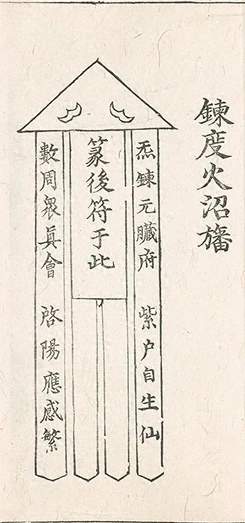 鍊度火沼旛
炁鍊元臟府 紫户自生仙
篆後符于此
數周衆真會 啓陽應感繁